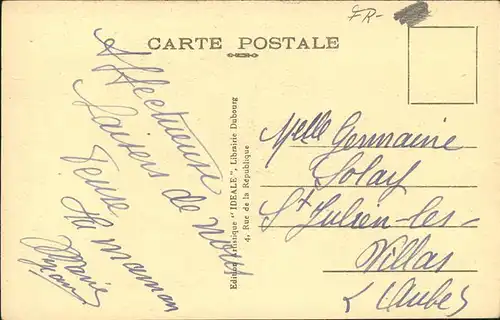 FR-
CARTE POSTALE
Affectueux
baisers de nous
Ta maman
Marie
Edition Artistique "IDEALE", Librairie Dubourg
4, Rue de la République
Melle Germaine
St Julien-les-
Villas
(Aube)